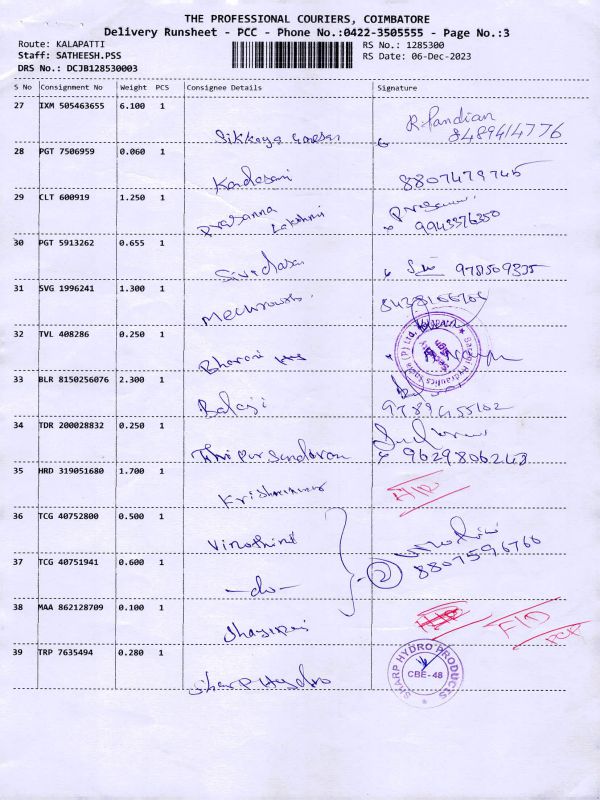 THE PROFESSIONAL COURIERS, COIMBATORE
Delivery Runsheet - PCC - Phone No.:0422-3505555 - Page No.:3
Route: KALAPATTI
Staff: SATHEESH.PSS
DRS No.: DCJB128530003
RS No.: 1285300
RS Date: 06-Dec-2023
S No Consignment No Weight PCS Consignee Details Signature
27 IXM 505463655 6.100 1
R. Pandian
8489414776
28 PGT 7506959 0.060 1
Kandasami 8807479745
29 CLT 600919 1.250 1
Prasanna Lakshmi 9943376350
30 PGT 5913262 0.655 1
Sivadasan 978509335
31 SVG 1996241 1.300 1
32 TVL 408286 0.250 1
Bharani
33 BLR 8150256076 2.300 1
Balaji 9789455102
34 TDR 200028832 0.250 1
Thripursundaran 9629806243
35 HRD 319051680 1.700 1
Krishnakumar
36 TCG 40752800 0.500 1
Vinothini
Vinothini
8807596766
37 TCG 40751941 0.600 1
-do- 2
38 MAA 862128709 0.100 1
39 TRP 7635494 0.280 1
Sharp Hydro
SHARP HYDRO PRODUCTS
CBE-48